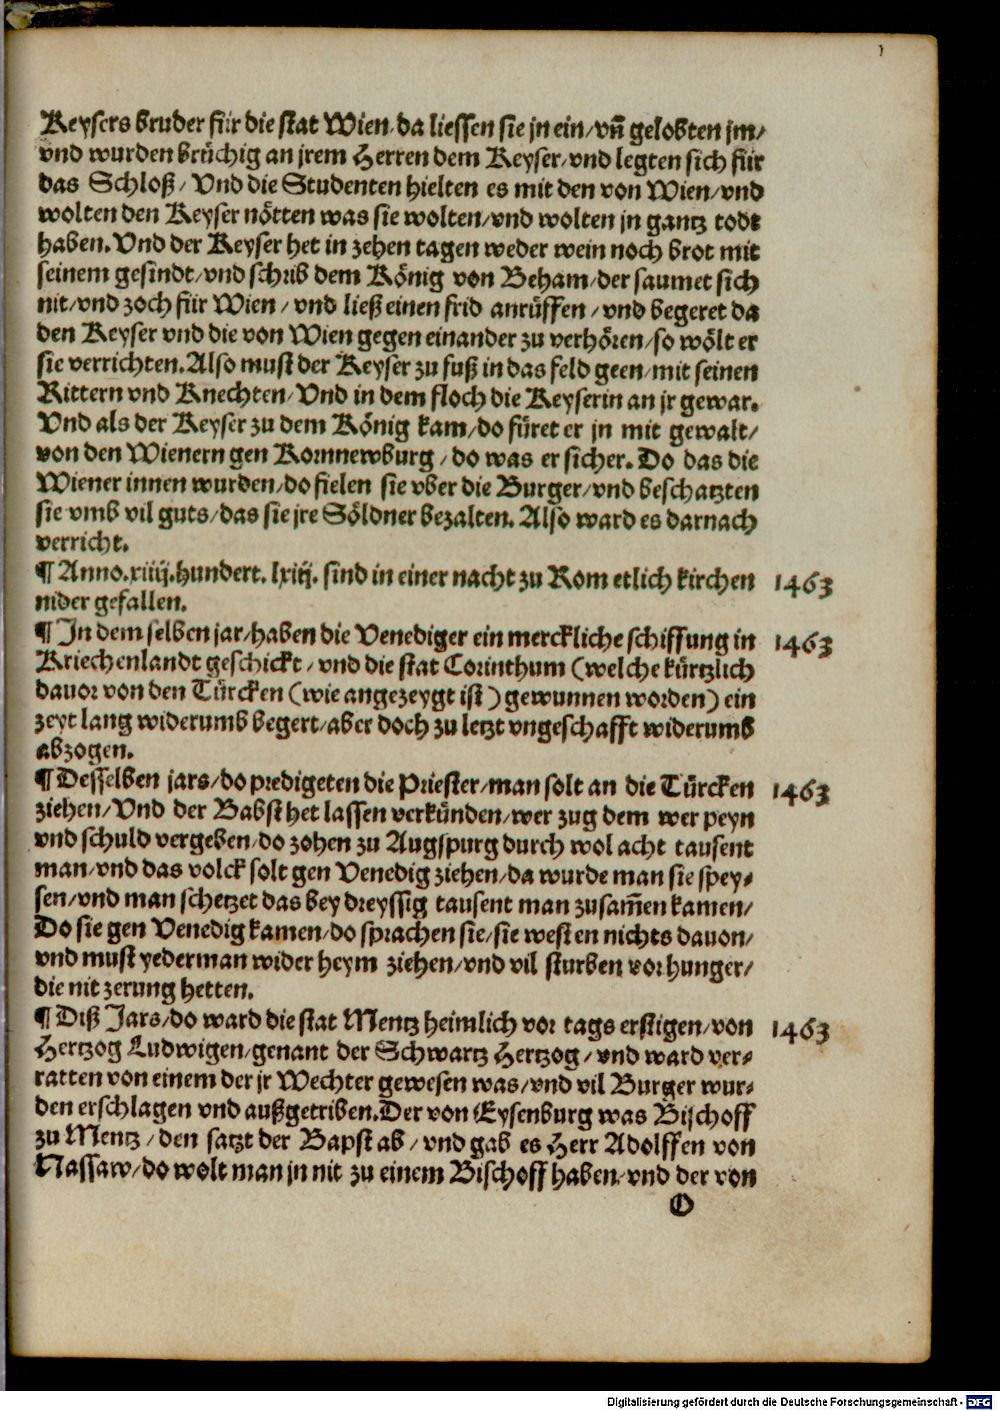 Keysers bruder für die stat Wien/da liessen sie jn ein/vñ gelobten jm/
vnd wurden brüchig an jrem Herren dem Keyser/vnd legten sich für
das Schloß/ Vnd die Studenten hielten es mit den von Wien/vnd
wolten den Keyser nötten was sie wolten/vnd wolten jn gantz todt
haben. Vnd der Keyser het in zehen tagen weder wein noch brot mit
seinem gesindt/vnd schrib dem König von Beham/der saumet sich
nit/vnd zoch für Wien/ vnd ließ einen frid anrüffen/ vnd begeret da
den Keyser vnd die von Wien gegen einander zu verhören/so wölt er
sie verrichten. Also must der Keyser zu fuß in das feld geen/mit seinen
Rittern vnd Knechten/ Vnd in dem floch die Keyserin an jr gewar.
Vnd als der Keyser zu dem König kam/do füret er jn mit gewalt/
von den Wienern gen Kornnewburg/ do was er sicher. Do das die
Wiener innen wurden/do fielen sie vber die Burger/vnd beschatzten
sie vmb vil guts/das sie jre Söldner bezalten. Also ward es darnach
verricht.
¶ Anno.xiiij.hundert. lxiij. sind in einer nacht zu Rom etlich kirchen 1463
nider gefallen.
¶ In dem selben jar/haben die Venediger ein merckliche schiffung in 1463
Kriechenlandt geschickt/ vnd die stat Corinthum (welche kürtzlich
dauor von den Türcken (wie angezeygt ist) gewunnen worden) ein
zeyt lang widerumb begert/aber doch zu letzt vngeschafft widerumb
abzogen.
¶ Desselben jars/do predigeten die Priester/man solt an die Türcken 1463
ziehen/Vnd der Babst het lassen verkünden/wer zug dem wer peyn
vnd schuld vergeben/do zohen zu Augspurg durch wol acht tausent
man/vnd das volck solt gen Venedig ziehen/da wurde man sie spey⸗
sen/vnd man schetzet das bey dreyssig tausent man zusam̃en kamen/
Do sie gen Venedig kamen/do sprachen sie/sie westen nichts dauon/
vnd must yederman wider heym ziehen/vnd vil sturben vor hunger/
die nit zerung hetten.
¶ Diß Jars/do ward die stat Mentz heimlich vor tags erstigen/von 1463
Hertzog Ludwigen/genant der Schwartz Hertzog/ vnd ward ver⸗
ratten von einem der jr Wechter gewesen was/vnd vil Burger wur⸗
den erschlagen vnd außgetriben. Der von Eysenburg was Bischoff
zu Mentz/ den satzt der Bapst ab/ vnd gab es Herr Adolffen von
Nassaw/do wolt man jn nit zu einem Bischoff haben/vnd der von
O
Digitalisierung gefördert durch die Deutsche Forschungsgemeinschaft - DFG